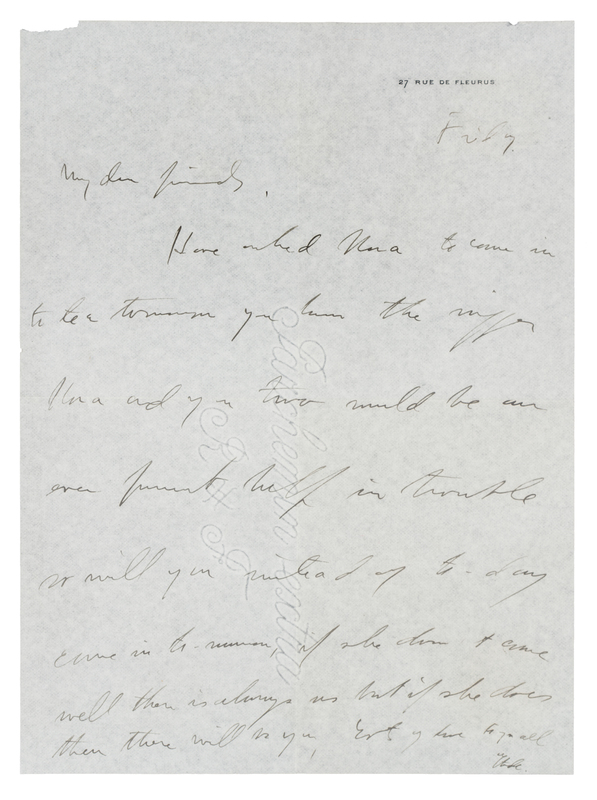 27 RUE DE FLEURUS
Friday.
My dear friends,
Have asked Nora to come in
to tea tomorrow you know the
Nora and you two would be an
ever present help in trouble
so will you instead of to-day
come in to-morrow, if she don't come
well there is always us but if she does
then there will be you, to you all